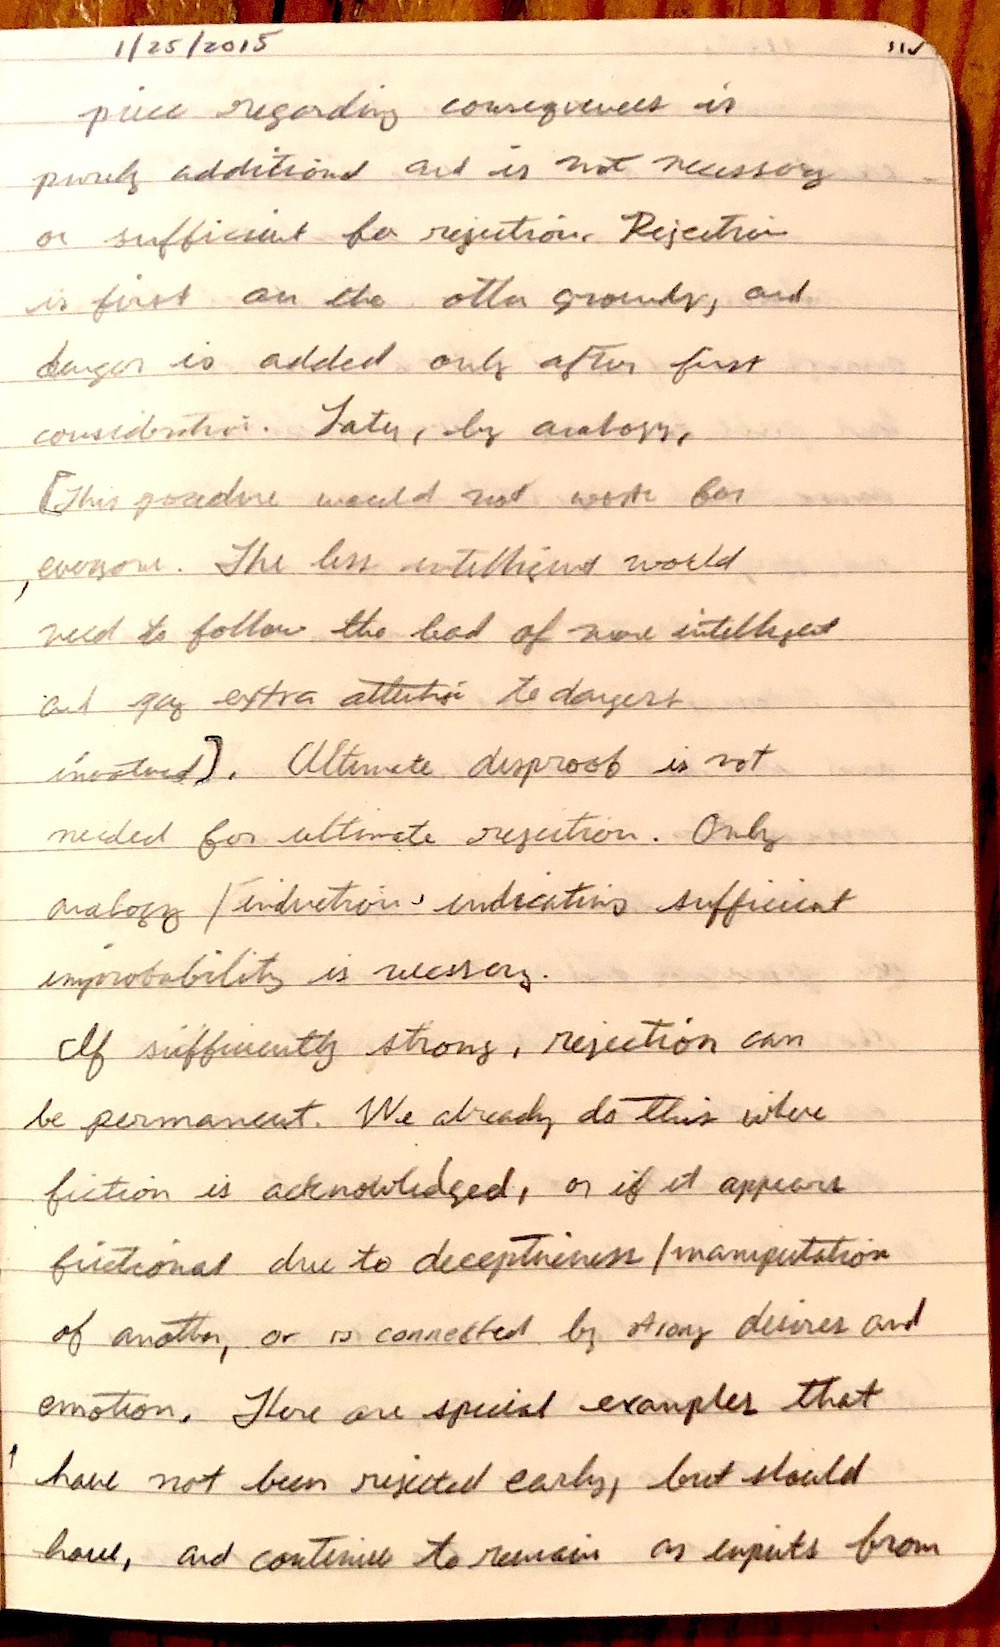 1/25/2015
piece regarding consequences is
purely additional and is not necessary
or sufficient for rejection. Rejection
is first on the other grounds, and
danger is added only after first
consideration. Later, by analogy,
[This procedure would not work for
everyone. The less intelligent would
need to follow the lead of more intelligent
and pay extra attention to dangers
involved]. Ultimate disproof is not
needed for ultimate rejection. Only
analogy / induction indicating sufficient
improbability is necessary.
If sufficiently strong, rejection can
be permanent. We already do this where
fiction is acknowledged, or if it appears
fictional due to deceptiveness / manipulation
of another, or is connected by strong desires and
emotion. There are special examples that
have not been rejected early, but should
have, and continue to remain as inputs from